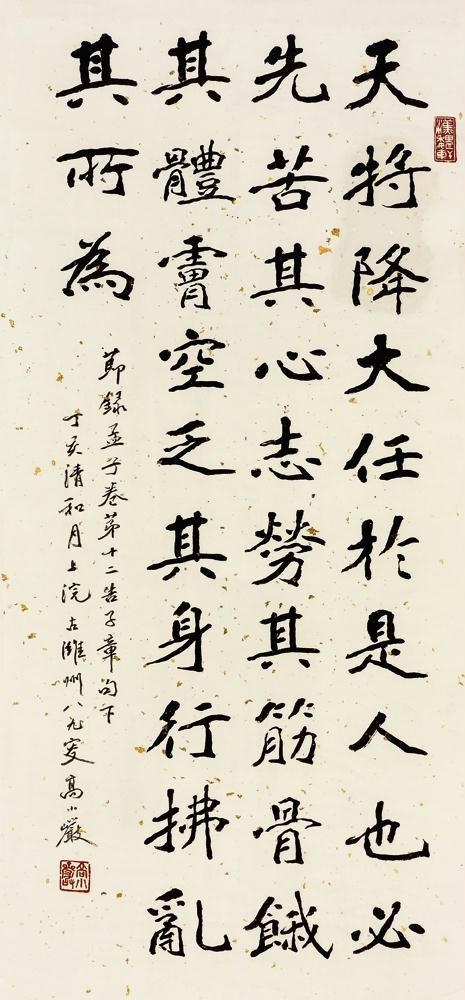 天將降大任於是人也必
先苦其心志勞其筋骨餓
其體膚空乏其身行拂亂
其所為
節錄孟子卷第十二告子章句下
丁亥清和月上浣古濰州八九叟高小巖